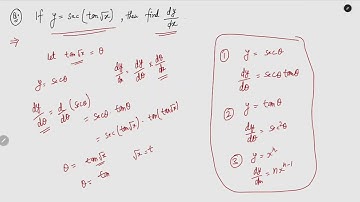 Q. If y = sec(tan√x), then find dy/dx
⇒
Let tan√x = θ
y = secθ
dy/dx = dy/dθ × dθ/dx
dy/dθ = d/dθ (secθ) = secθ tanθ
= sec(tan√x) · tan(tan√x)
θ = tan√x
√x = t
θ = tan
① y = secθ
dy/dθ = secθ tanθ
② y = tanθ
dy/dθ = sec²θ
③ y = xⁿ
dy/dx = nxⁿ⁻¹